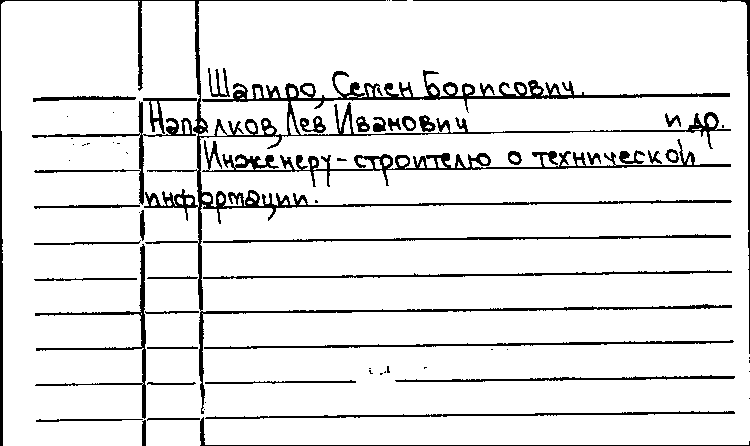 Шапиро, Семен Борисович.
Напалков, Лев Иванович и др.
Инженеру-строителю о технической
информации.